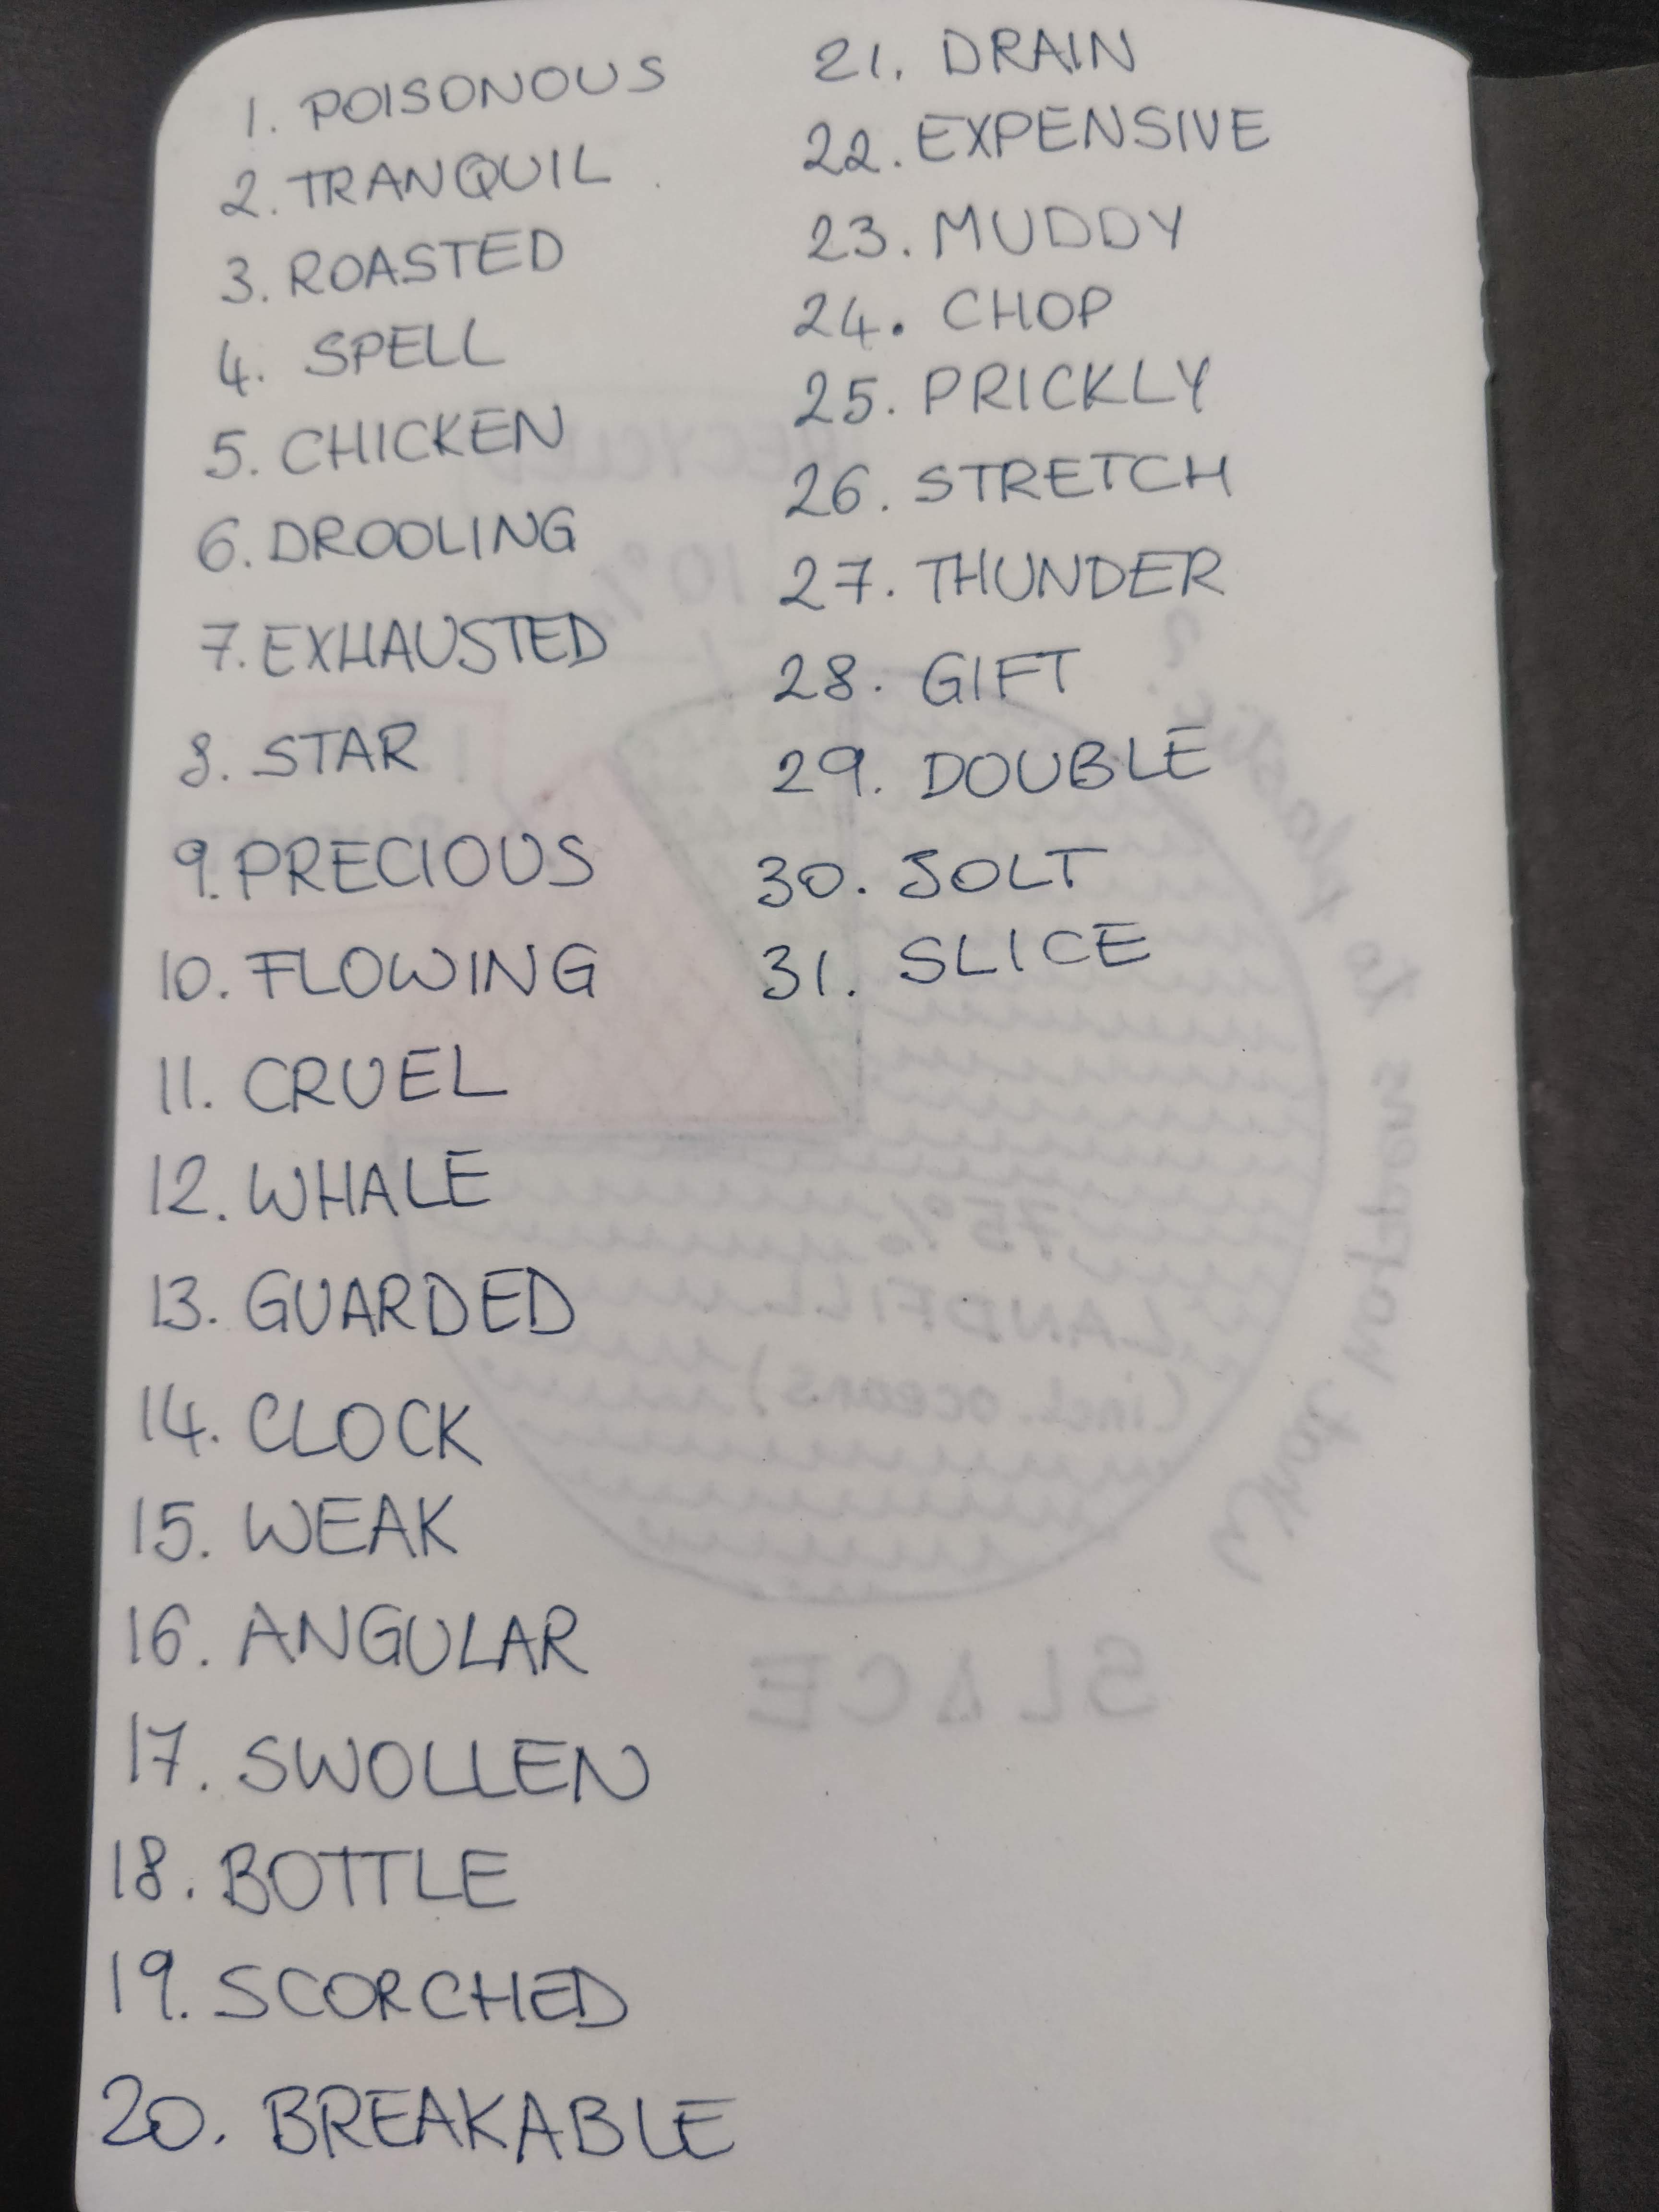 1. POISONOUS
2. TRANQUIL
3. ROASTED
4. SPELL
5. CHICKEN
6. DROOLING
7. EXHAUSTED
8. STAR
9. PRECIOUS
10. FLOWING
11. CRUEL
12. WHALE
13. GUARDED
14. CLOCK
15. WEAK
16. ANGULAR
17. SWOLLEN
18. BOTTLE
19. SCORCHED
20. BREAKABLE
21. DRAIN
22. EXPENSIVE
23. MUDDY
24. CHOP
25. PRICKLY
26. STRETCH
27. THUNDER
28. GIFT
29. DOUBLE
30. JOLT
31. SLICE
RECYCLED
10%
75%
LANDFILL
(incl. oceans)
What happens to
SLICE